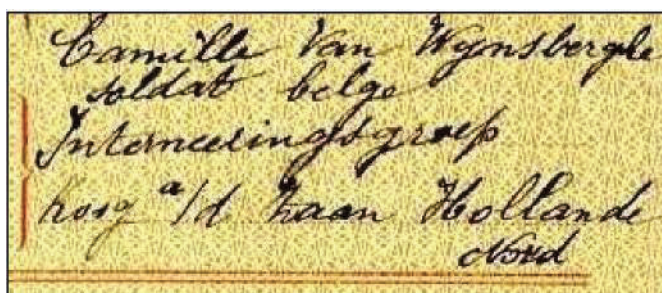 Camille Van Wynsberghe
soldat belge
Interneeringsgroep
a/d Zaan Hollande
Nord